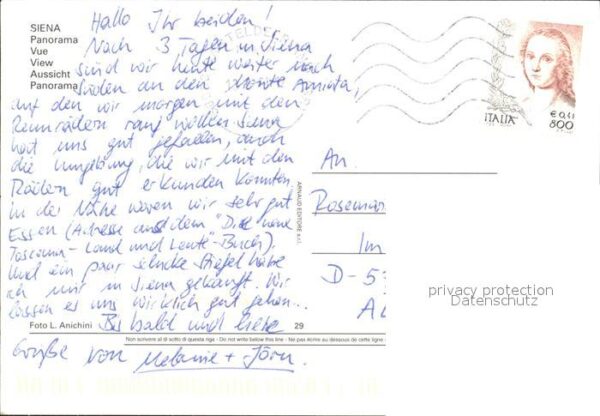 SIENA
Panorama
Vue
View
Aussicht
Panorama
Hallo Ihr beiden!
Nach 3 Tagen in Siena
sind wir heute weiter nach
Süden an den Monte Amiata,
auf den wir morgen mit den
Rennrädern rauf wollen. Siena
hat uns gut gefallen, auch
die Umgebung, die wir mit den
Rädern gut erkunden konnten.
In der Nähe waren wir sehr gut
Essen (Adresse aus dem "Die neue
Toscana-Land und Leute-Buch).
Und ein paar schicke Stiefel habe
ich mir in Siena gekauft. Wir
lassen es uns wirklich gut gehen...
Bis bald und liebe
Grüße von Melanie + Jörn.
Foto L. Anichini
29
Non scrivere al di sotto di questa riga - Do not write below this line - Ne pas écrire au dessous de cette ligne
ARNAUD EDITORE s.r.l.
ITALIA
€ 0,41
800
An
Rosemar
Im
D-53
privacy protection
Datenschutz